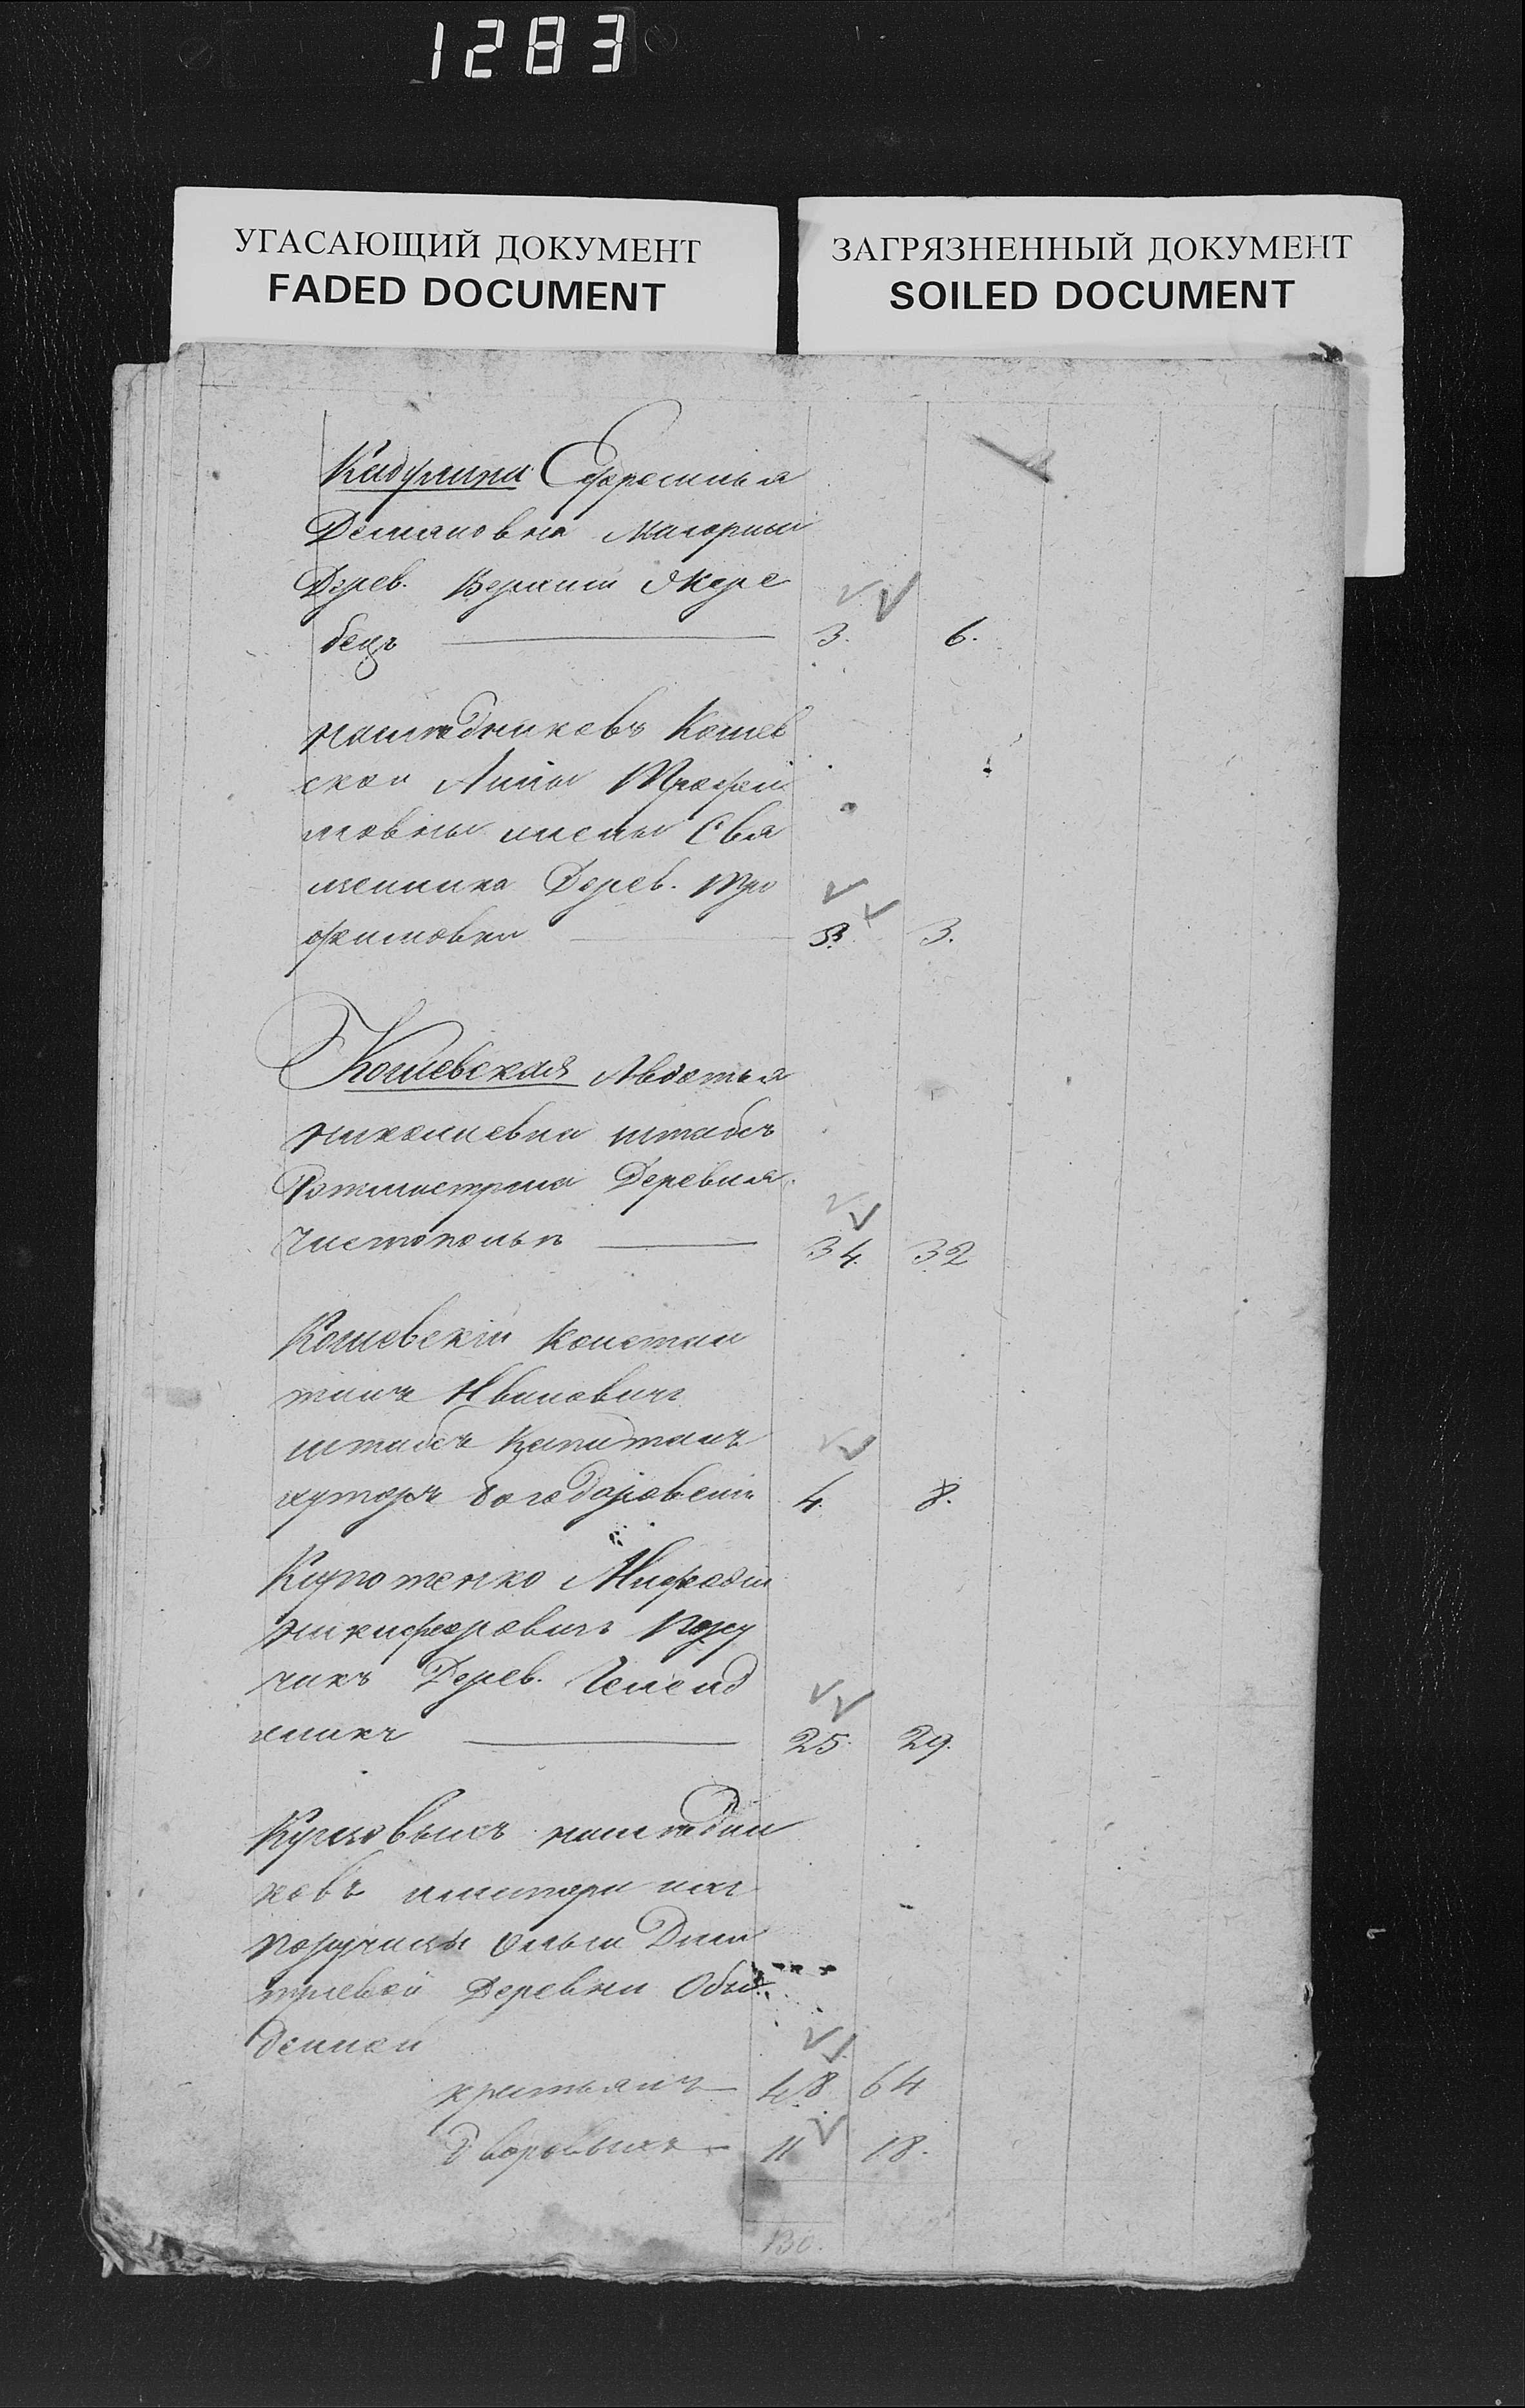 1283
УГАСАЮЩИЙ ДОКУМЕНТ
FADED DOCUMENT
ЗАГРЯЗНЕННЫЙ ДОКУМЕНТ
SOILED DOCUMENT
Ефросинья
Демяновна Маіорша
Дерев. Верхній Жере
бецъ 3. 6.
наследниковъ Кошев
ской Анны Трофи
мовны жены Свя
щенника Дерев. Тро
фимовки 3. 3.
Кошевская Авдотья
Николаевна штабъ
Ротмистрша Деревня
Чистополье 34. 32
Кошевскій Констан
тинъ Ивановичъ
штабсъ Капитанъ
хуторъ Богодаровскій 4. 8.
Мефодій
Никифоровичъ Пору
чикъ Дерев.
25. 29.
наследни
ковъ матери ихъ
поручицы Ольги Дми
тріевой Деревни Обы
денной
крестьянъ 48 64
Дворовыхъ 11 18.
130.